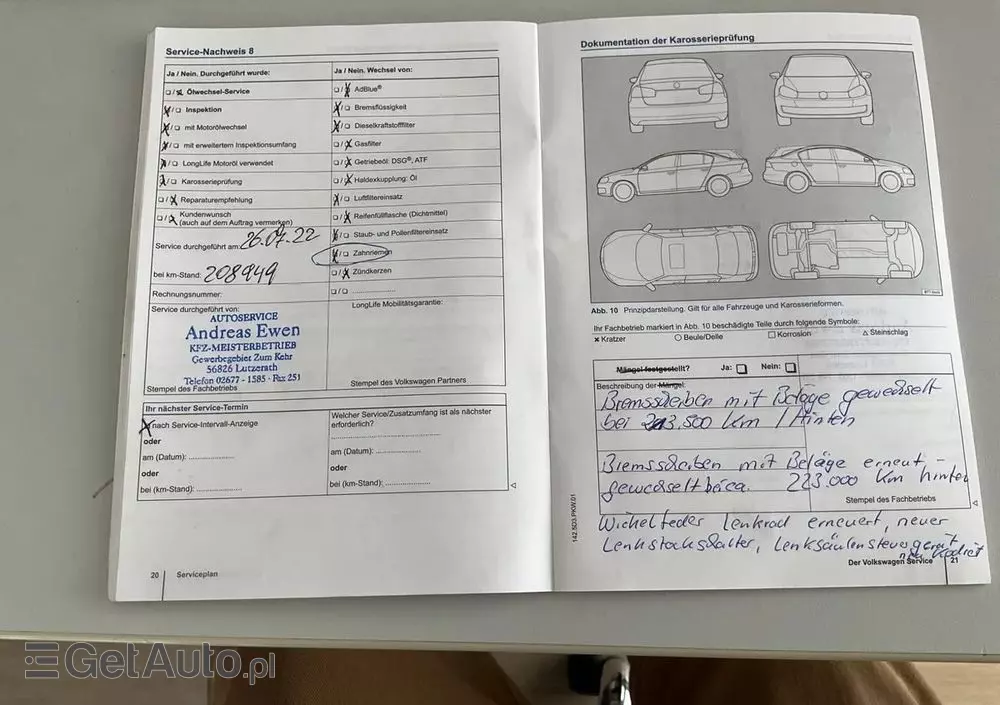 Service-Nachweis 8
Ja / Nein. Durchgeführt wurde:
Ölwechsel-Service
Inspektion
mit Motorölwechsel
mit erweitertem Inspektionsumfang
LongLife Motoröl verwendet
Karosserieprüfung
Reparaturempfehlung
Kundenwunsch
(auch auf dem Auftrag vermerken)
Service durchgeführt am: 26.07.22
bei km-Stand: 208949
Rechnungsnummer:
Service durchgeführt von:
AUTOSERVICE
Andreas Ewen
KFZ-MEISTERBETRIEB
Gewerbegebiet Zum Kehr
56826 Lutzerath
Telefon 02677 - 1585 · Fax 251
Stempel des Fachbetriebs
Ja / Nein. Wechsel von:
AdBlue®
Bremsflüssigkeit
Dieselkraftstofffilter
Gasfilter
Getriebeöl: DSG®, ATF
Haldexkupplung: Öl
Luftfiltereinsatz
Reifenfüllflasche (Dichtmittel)
Staub- und Pollenfiltereinsatz
Zahnriemen
Zündkerzen
LongLife Mobilitätsgarantie:
Stempel des Volkswagen Partners
Ihr nächster Service-Termin
nach Service-Intervall-Anzeige
oder
am (Datum): ....................
oder
bei (km-Stand): ....................
Welcher Service/Zusatzumfang ist als nächster
erforderlich?
am (Datum): ....................
oder
bei (km-Stand): ....................
20 Serviceplan
Dokumentation der Karosserieprüfung
Abb. 10 Prinzipdarstellung. Gilt für alle Fahrzeuge und Karosserieformen.
Ihr Fachbetrieb markiert in Abb. 10 beschädigte Teile durch folgende Symbole:
× Kratzer ○ Beule/Delle □ Korrosion △ Steinschlag
Mängel festgestellt? Ja: □ Nein: □
Beschreibung der Mängel:
Bremsscheiben mit Beläge gewechselt
bei 213.500 Km / Hinten
Bremsscheiben mit Beläge erneut -
gewechselt bei ca. 223.000 Km hinten
Stempel des Fachbetriebs
Wickelfeder Lenkrad erneuert, neuer
Lenkstockschalter, Lenksäulensteuergerät
neu Kodiert
142.5Q3.PKW.01
Der Volkswagen Service 21
GetAuto.pl